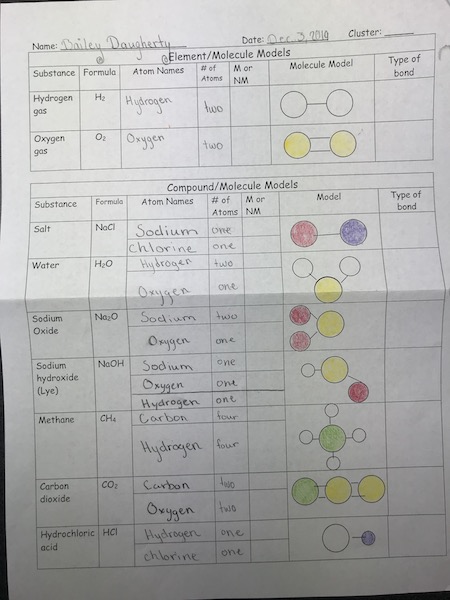 Name: Bailey Daugherty Date: Dec. 3, 2019 Cluster:
Element/Molecule Models
Substance Formula Atom Names # of Atoms M or NM Molecule Model Type of bond
Hydrogen gas H₂ Hydrogen two
Oxygen gas O₂ Oxygen two
Compound/Molecule Models
Substance Formula Atom Names # of Atoms M or NM Model Type of bond
Salt NaCl Sodium one
Chlorine one
Water H₂O Hydrogen two
Oxygen one
Sodium Oxide Na₂O Sodium two
Oxygen one
Sodium hydroxide (Lye) NaOH Sodium one
Oxygen one
Hydrogen one
Methane CH₄ Carbon four
Hydrogen four
Carbon dioxide CO₂ Carbon two
Oxygen two
Hydrochloric acid HCl Hydrogen one
chlorine one